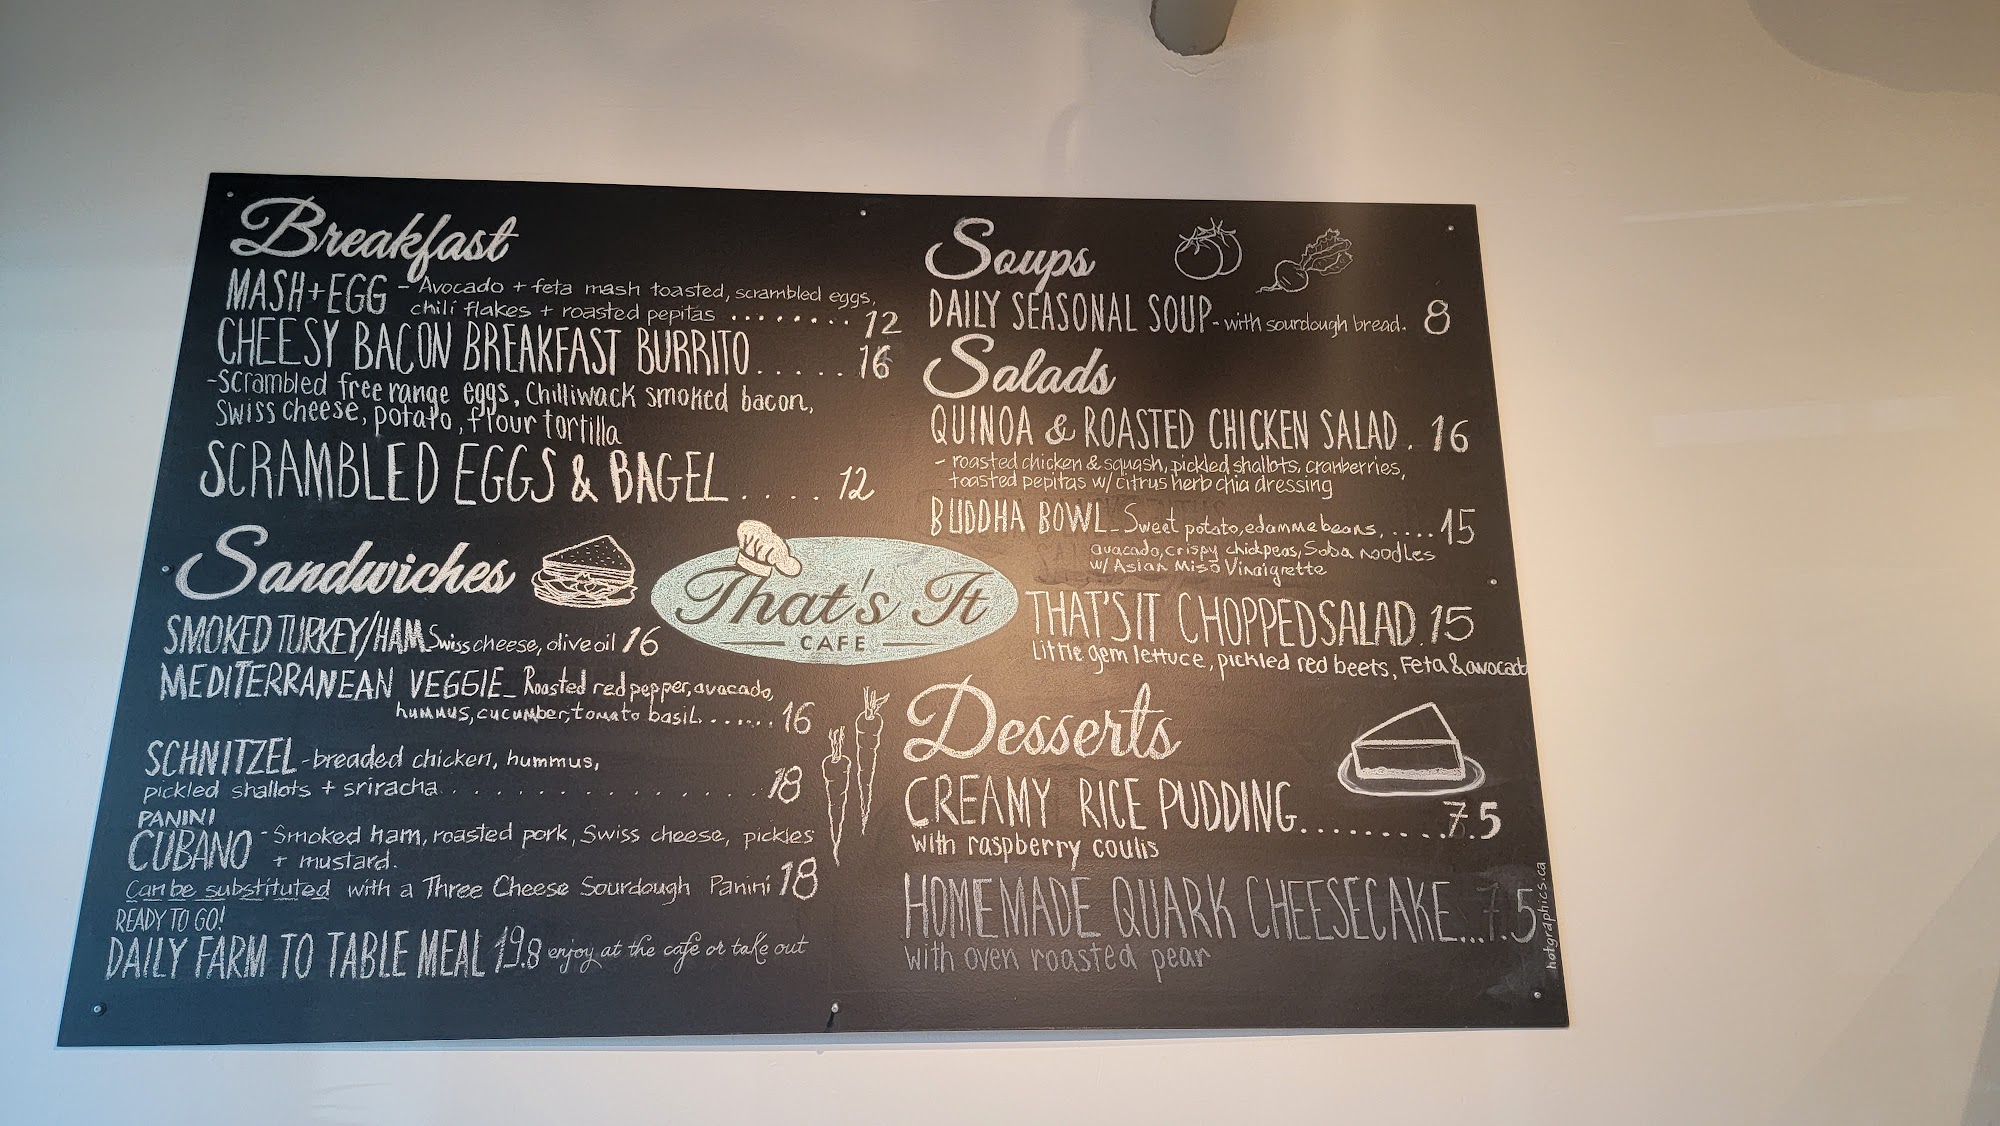 Breakfast
MASH+EGG - Avocado + feta mash toasted, scrambled eggs,
chili flakes + roasted pepitas ........ 12
CHEESY BACON BREAKFAST BURRITO..... 16
-scrambled free range eggs, Chilliwack smoked bacon,
Swiss cheese, potato, flour tortilla
SCRAMBLED EGGS & BAGEL.... 12
Sandwiches
SMOKED TURKEY/HAM Swiss cheese, olive oil 16
MEDITERRANEAN VEGGIE_ Roasted red pepper, avacado,
hummus, cucumber, tomato basil....... 16
SCHNITZEL -breaded chicken, hummus,
pickled shallots + sriracha................ 18
PANINI
CUBANO -Smoked ham, roasted pork, Swiss cheese, pickles
+ mustard.
Can be substituted with a Three Cheese Sourdough Panini 18
READY TO GO!
DAILY FARM TO TABLE MEAL 19.8 enjoy at the cafe or take out
That's It
CAFE
Soups
DAILY SEASONAL SOUP- with sourdough bread. 8
Salads
QUINOA & ROASTED CHICKEN SALAD . 16
- roasted chicken & squash, pickled shallots, cranberries,
toasted pepitas w/ citrus herb chia dressing
BUDDHA BOWL_ Sweet potato, edamme beans, .... 15
avacado, crispy chickpeas, Soba noodles
w/ Asian Miso Vinaigrette
THAT'S IT CHOPPED SALAD . 15
Little gem lettuce, pickled red beets, Feta & avocado
Desserts
CREAMY RICE PUDDING......... 7.5
with raspberry coulis
HOMEMADE QUARK CHEESECAKE... 7.5
with oven roasted pear
hotgraphics.ca